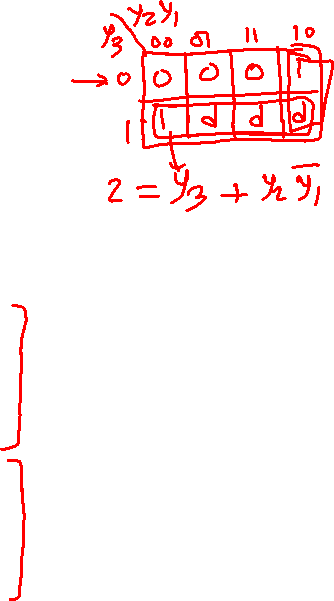 y2y1
y3 00 01 11 10
→ 0 0 0 0 1
1 1 d d d
2 = y3 + y2 y̅1̅